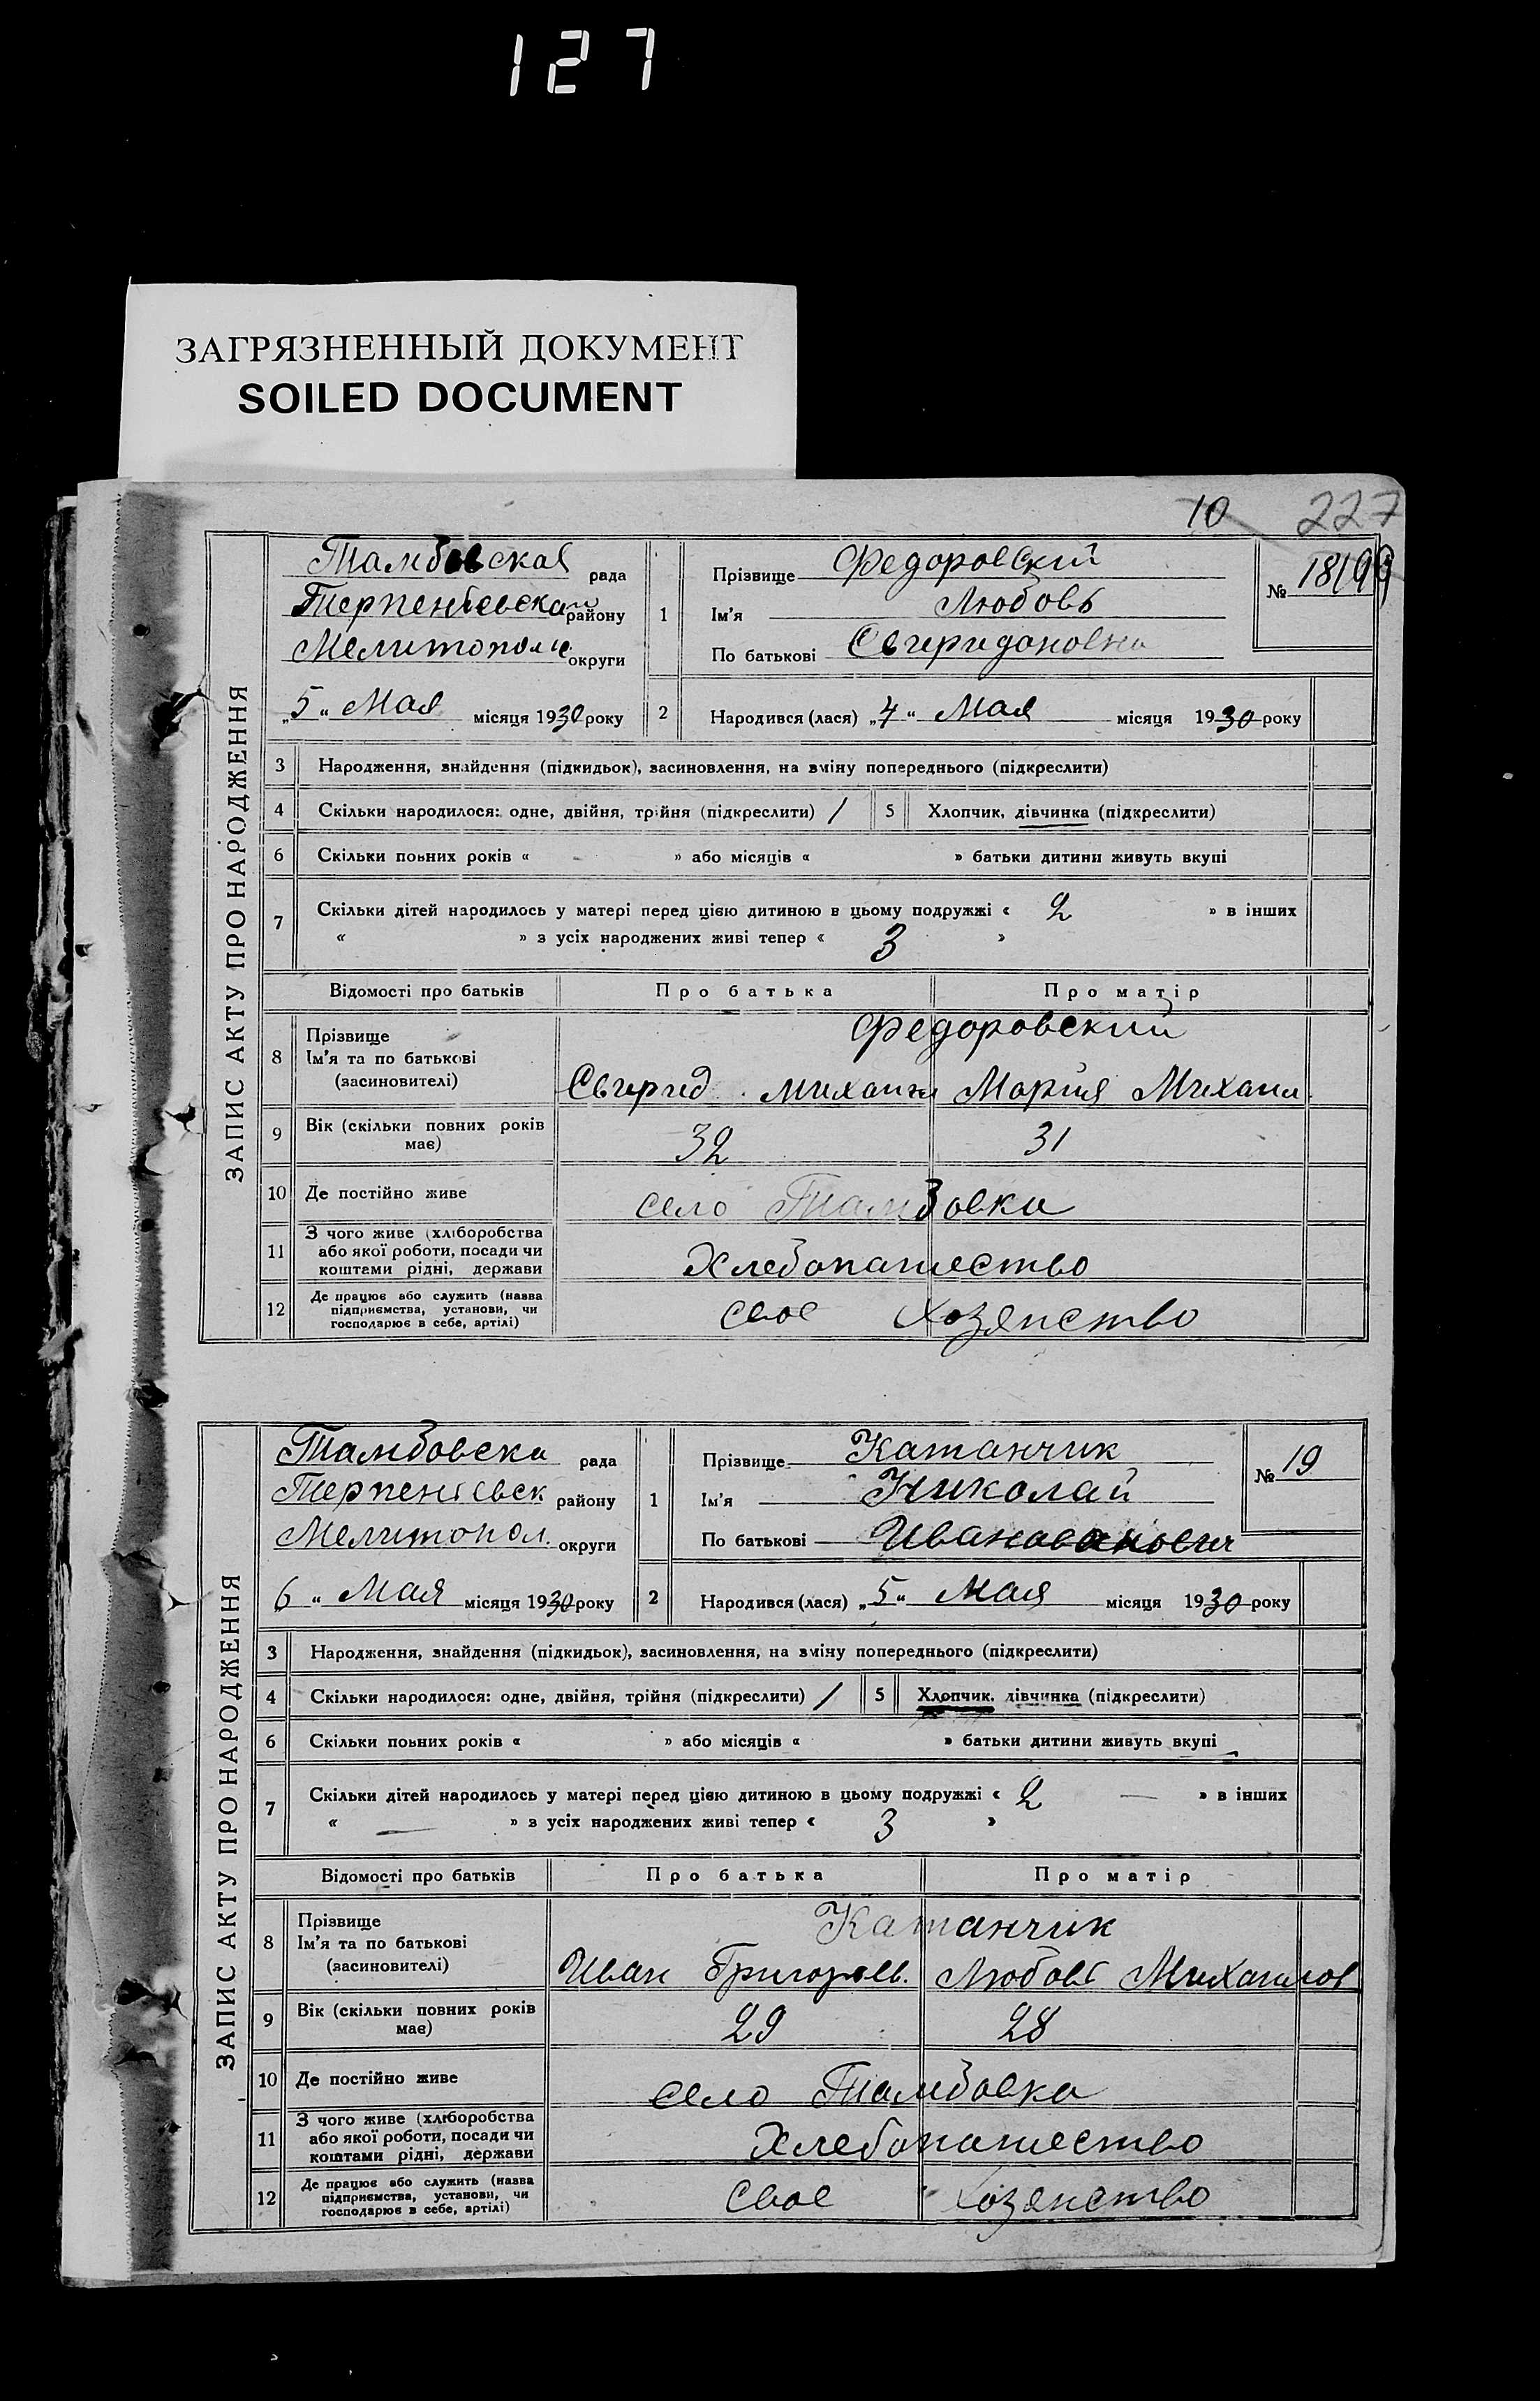 127
ЗАГРЯЗНЕННЫЙ ДОКУМЕНТ
SOILED DOCUMENT
10 227
ЗАПИС АКТУ ПРО НАРОДЖЕННЯ
Тамбовская рада
Терпеньевская району
Мелитополь округи
„5“ Мая місяця 1930 року
1 Прізвище Федоровский
Ім'я Любовь
По батькові Свиридоновна
№ 18
2 Народився (лася) „4“ Мая місяця 1930 року
3 Народження, знайдення (підкидьок), засиновлення, на зміну попереднього (підкреслити)
4 Скільки народилося: одне, двійня, трійня (підкреслити) / 5 Хлопчик, дівчинка (підкреслити)
6 Скільки повних років « » або місяців « » батьки дитини живуть вкупі
7 Скільки дітей народилось у матері перед цією дитиною в цьому подружжі « 2 » в інших
« » з усіх народжених живі тепер « 3 »
Відомості про батьків Про батька Про матір
8 Прізвище Федоровский
Ім'я та по батькові
(засиновителі) Свирид Михаил Мария Михаил
9 Вік (скільки повних років має) 32 31
10 Де постійно живе село Тамбовка
11 З чого живе (хліборобства
або якої роботи, посади чи
коштами рідні, держави Хлебопашество
12 Де працює або служить (назва
підприємства, установи, чи
господарює в себе, артілі) свое Хозянство
ЗАПИС АКТУ ПРО НАРОДЖЕННЯ
Тамбовска рада
Терпеньевск району
Мелитопол. округи
6“ Мая місяця 1930 року
1 Прізвище Катанчик
Ім'я Николай
По батькові
№ 19
2 Народився (лася) „5“ Мая місяця 1930 року
3 Народження, знайдення (підкидьок), засиновлення, на зміну попереднього (підкреслити)
4 Скільки народилося: одне, двійня, трійня (підкреслити) / 5 Хлопчик, дівчинка (підкреслити)
6 Скільки повних років « » або місяців « » батьки дитини живуть вкупі
7 Скільки дітей народилось у матері перед цією дитиною в цьому подружжі « 2 — » в інших
« — » з усіх народжених живі тепер « 3 »
Відомості про батьків Про батька Про матір
8 Прізвище Катанчик
Ім'я та по батькові
(засиновителі) Иван Григорьев. Любовь Михаилов
9 Вік (скільки повних років має) 29 28
10 Де постійно живе село Тамбовка
11 З чого живе (хліборобства
або якої роботи, посади чи
коштами рідні, держави Хлебопашество
12 Де працює або служить (назва
підприємства, установи, чи
господарює в себе, артілі) Свое Хозянство